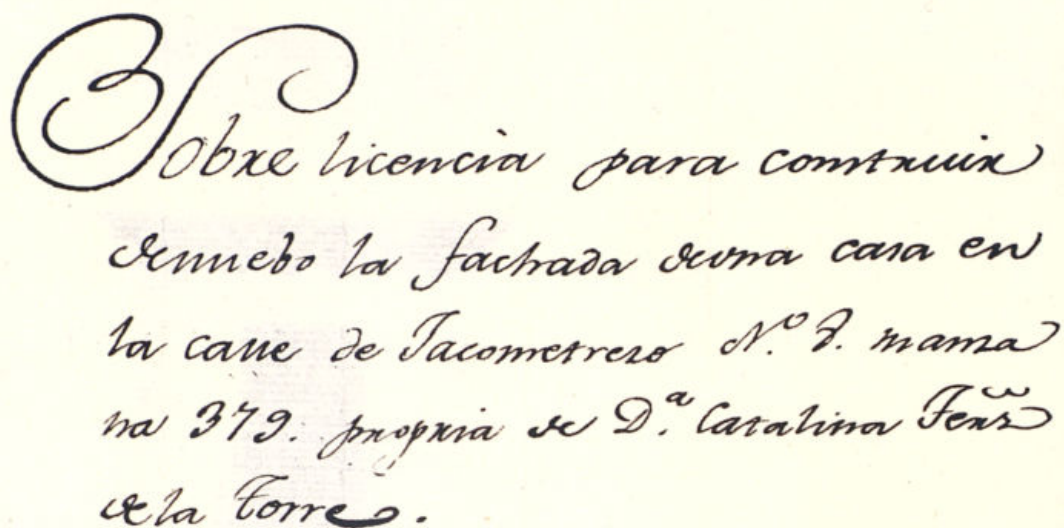 Sobre licencia para construir
denuebo la fachada deuna casa en
la calle de Jacometrezo N.º 8. manza
na 379. propria de D.ª Catalina Fernz
de la Torre.